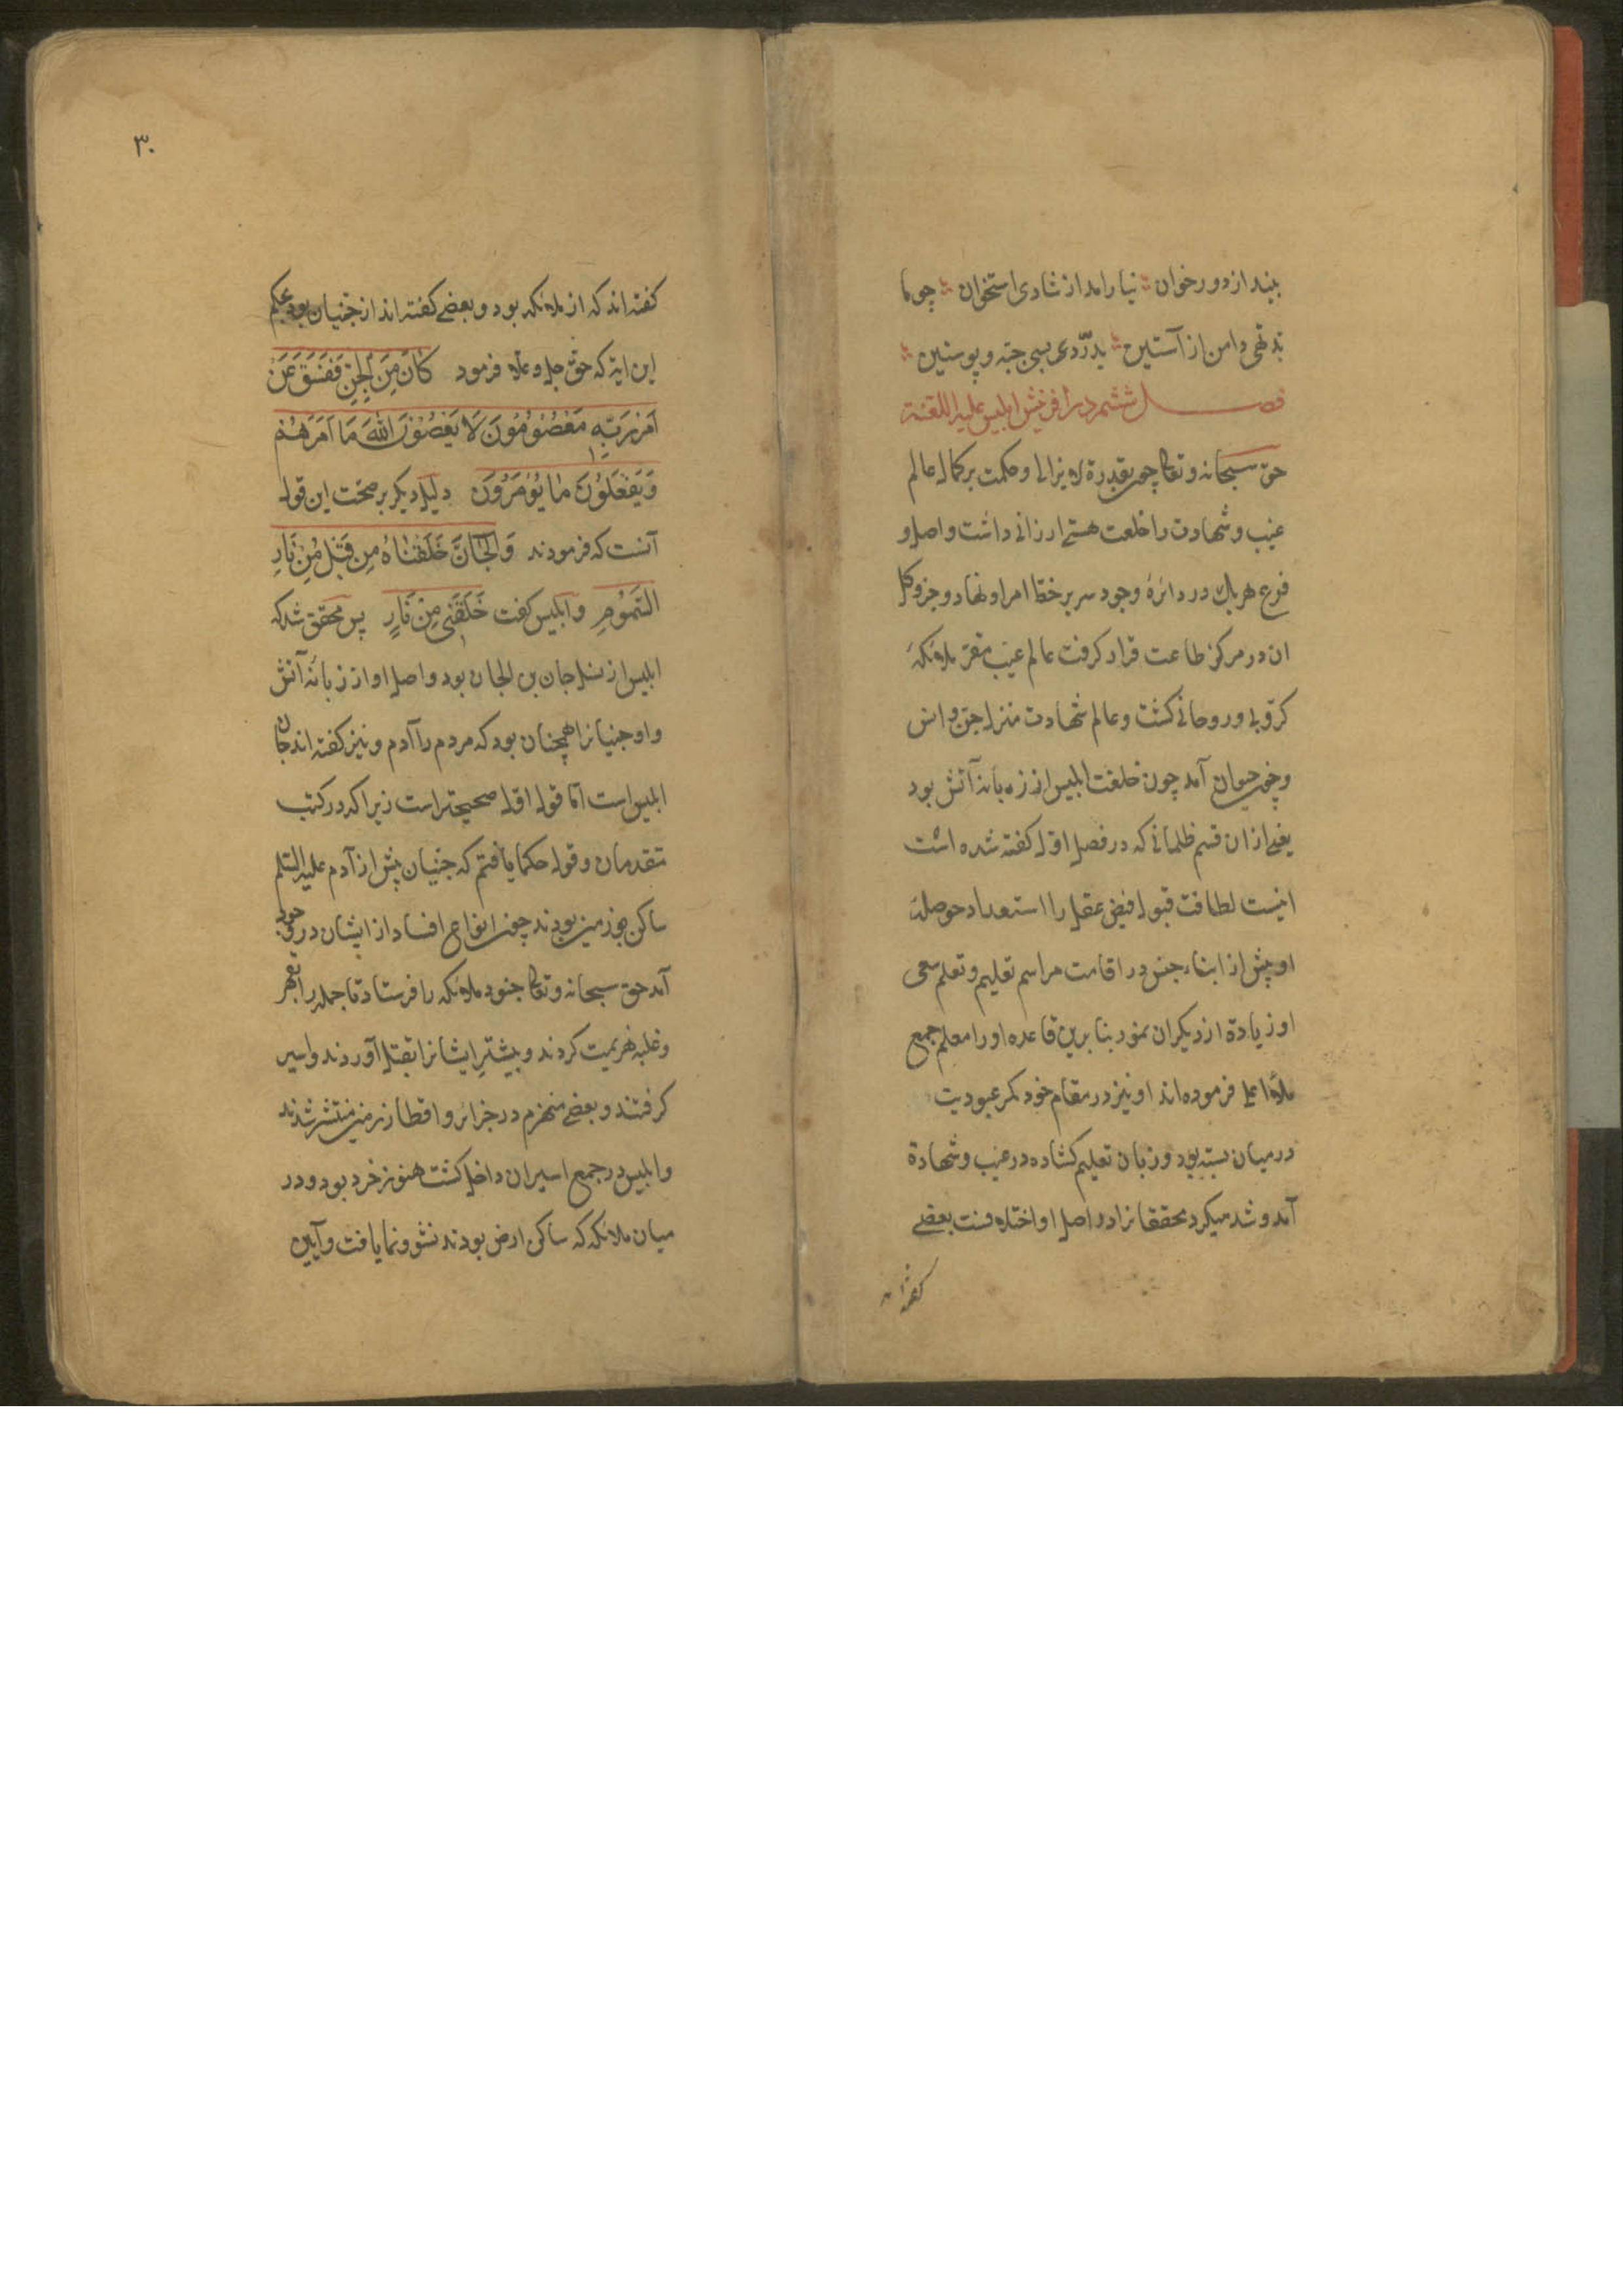 بیند از دور خوان نیارامد از شادی استخوان چو ما
تهی دامن از آستین بدرّد بسی جبّه و پوستین
فصل ششم در افرینش ابلیس علیه اللعنة
حق سبحانه و تعالی چون بقدرة لا یزالی و حکمت بر کمال عالم
غیب و شهادت را خلعت هستی ارزانی داشت و اصل و
فرع هر یک در دائرهٔ وجود سر بر خط امر او نهاد و جزو کل
ان در مرکز طاعت قرار کرفت عالم غیب مقر ملائکهٔ
کرّوبی و روحانی کشت و عالم شهادت منزل جن و انس
و حیوان آمد چون خلقت ابلیس از زبانه آتش بود
یعنی از ان قسم ظلمانی که در فصل اول کفته شده است
لطافت قبول فیض عقل را استعداد حوصلهٔ
او بیش از ابناء جنس در اقامت مراسم تعلیم و تعلم سعی
او زیادة از دیکران نمود بنا برین قاعده او را معلم جمع
ملأ اعلی فرموده‌اند او نیز در مقام خود کمر عبودیت
در میان بسته بود و زبان تعلیم کشاده در غیب و شهادة
آمد و شد میکرد محققانرا در اصل او اختلافست بعضی
کفته‌اند
۳۰
کفته‌اند که از ملائکه بود و بعضی کفته‌اند از جنیان بود بحکم
این ایة که حق جل و علا فرمود كَانَ مِنَ الْجِنِّ فَفَسَقَ عَنْ
اَمْرِ رَبِّهِ مَعْصُومُونَ لَا يَعْصُونَ اللهَ مَا اَمَرَهُمْ
وَيَفْعَلُونَ مَا يُؤْمَرُونَ دلیل دیکر بر صحّت این قول
آنست که فرمودند وَالْجَانَّ خَلَقْنَاهُ مِن قَبْلُ مِنْ نَارِ
السَّمُومِ و ابلیس کفت خَلَقْتَنِي مِنْ نَارٍ پس محقق شد که
ابلیس از نسل جان بن الجان بود و اصل او از زبانهٔ آتش
و او جنیانرا همچنان بود که مردم را آدم و نیز کفته‌اند جان
ابلیس است امّا قول اول صحیحتر است زیرا که در کتب
متقدمان و قول حکما یافتم که جنیان پیش از آدم علیه السلم
ساکن زمین بودند چون انواع افساد از ایشان در وجود
آمد حق سبحانه و تعالی جنود ملائکه را فرستاد تا جمله را بقهر
و غلبه هزیمت کردند و بیشترِ ایشانرا بقتل آوردند و اسیر
کرفتند و بعضی منهزم در جزائر و اقطار زمین منتشر شدند
و ابلیس در جمع اسیران داخل کشت هنوز خرد بود و در
میان ملائکه که ساکن ارض بودند نشو و نما یافت و آیین